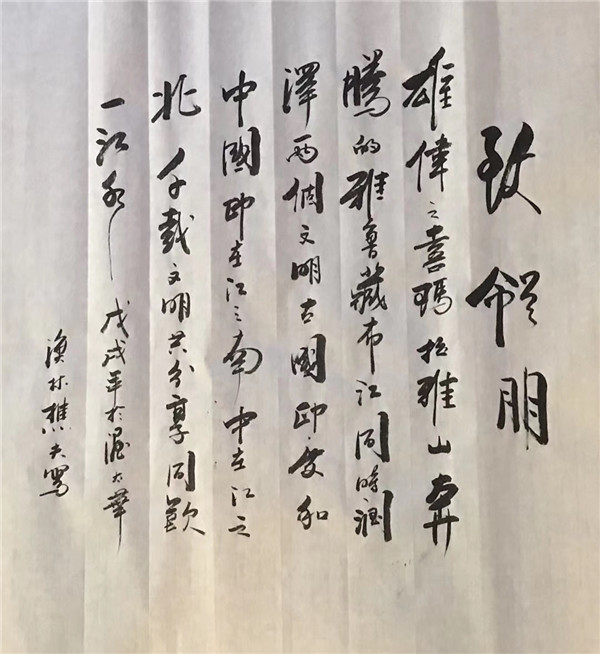 致朋
雄偉之喜瑪拉雅山奔
騰的雅魯藏布江同時潤
澤两個文明古國印度和
中國印在江之南中在江之
北千載文明共分享同飲
一江水 戊戌年於渥太華
漁林樵夫寫